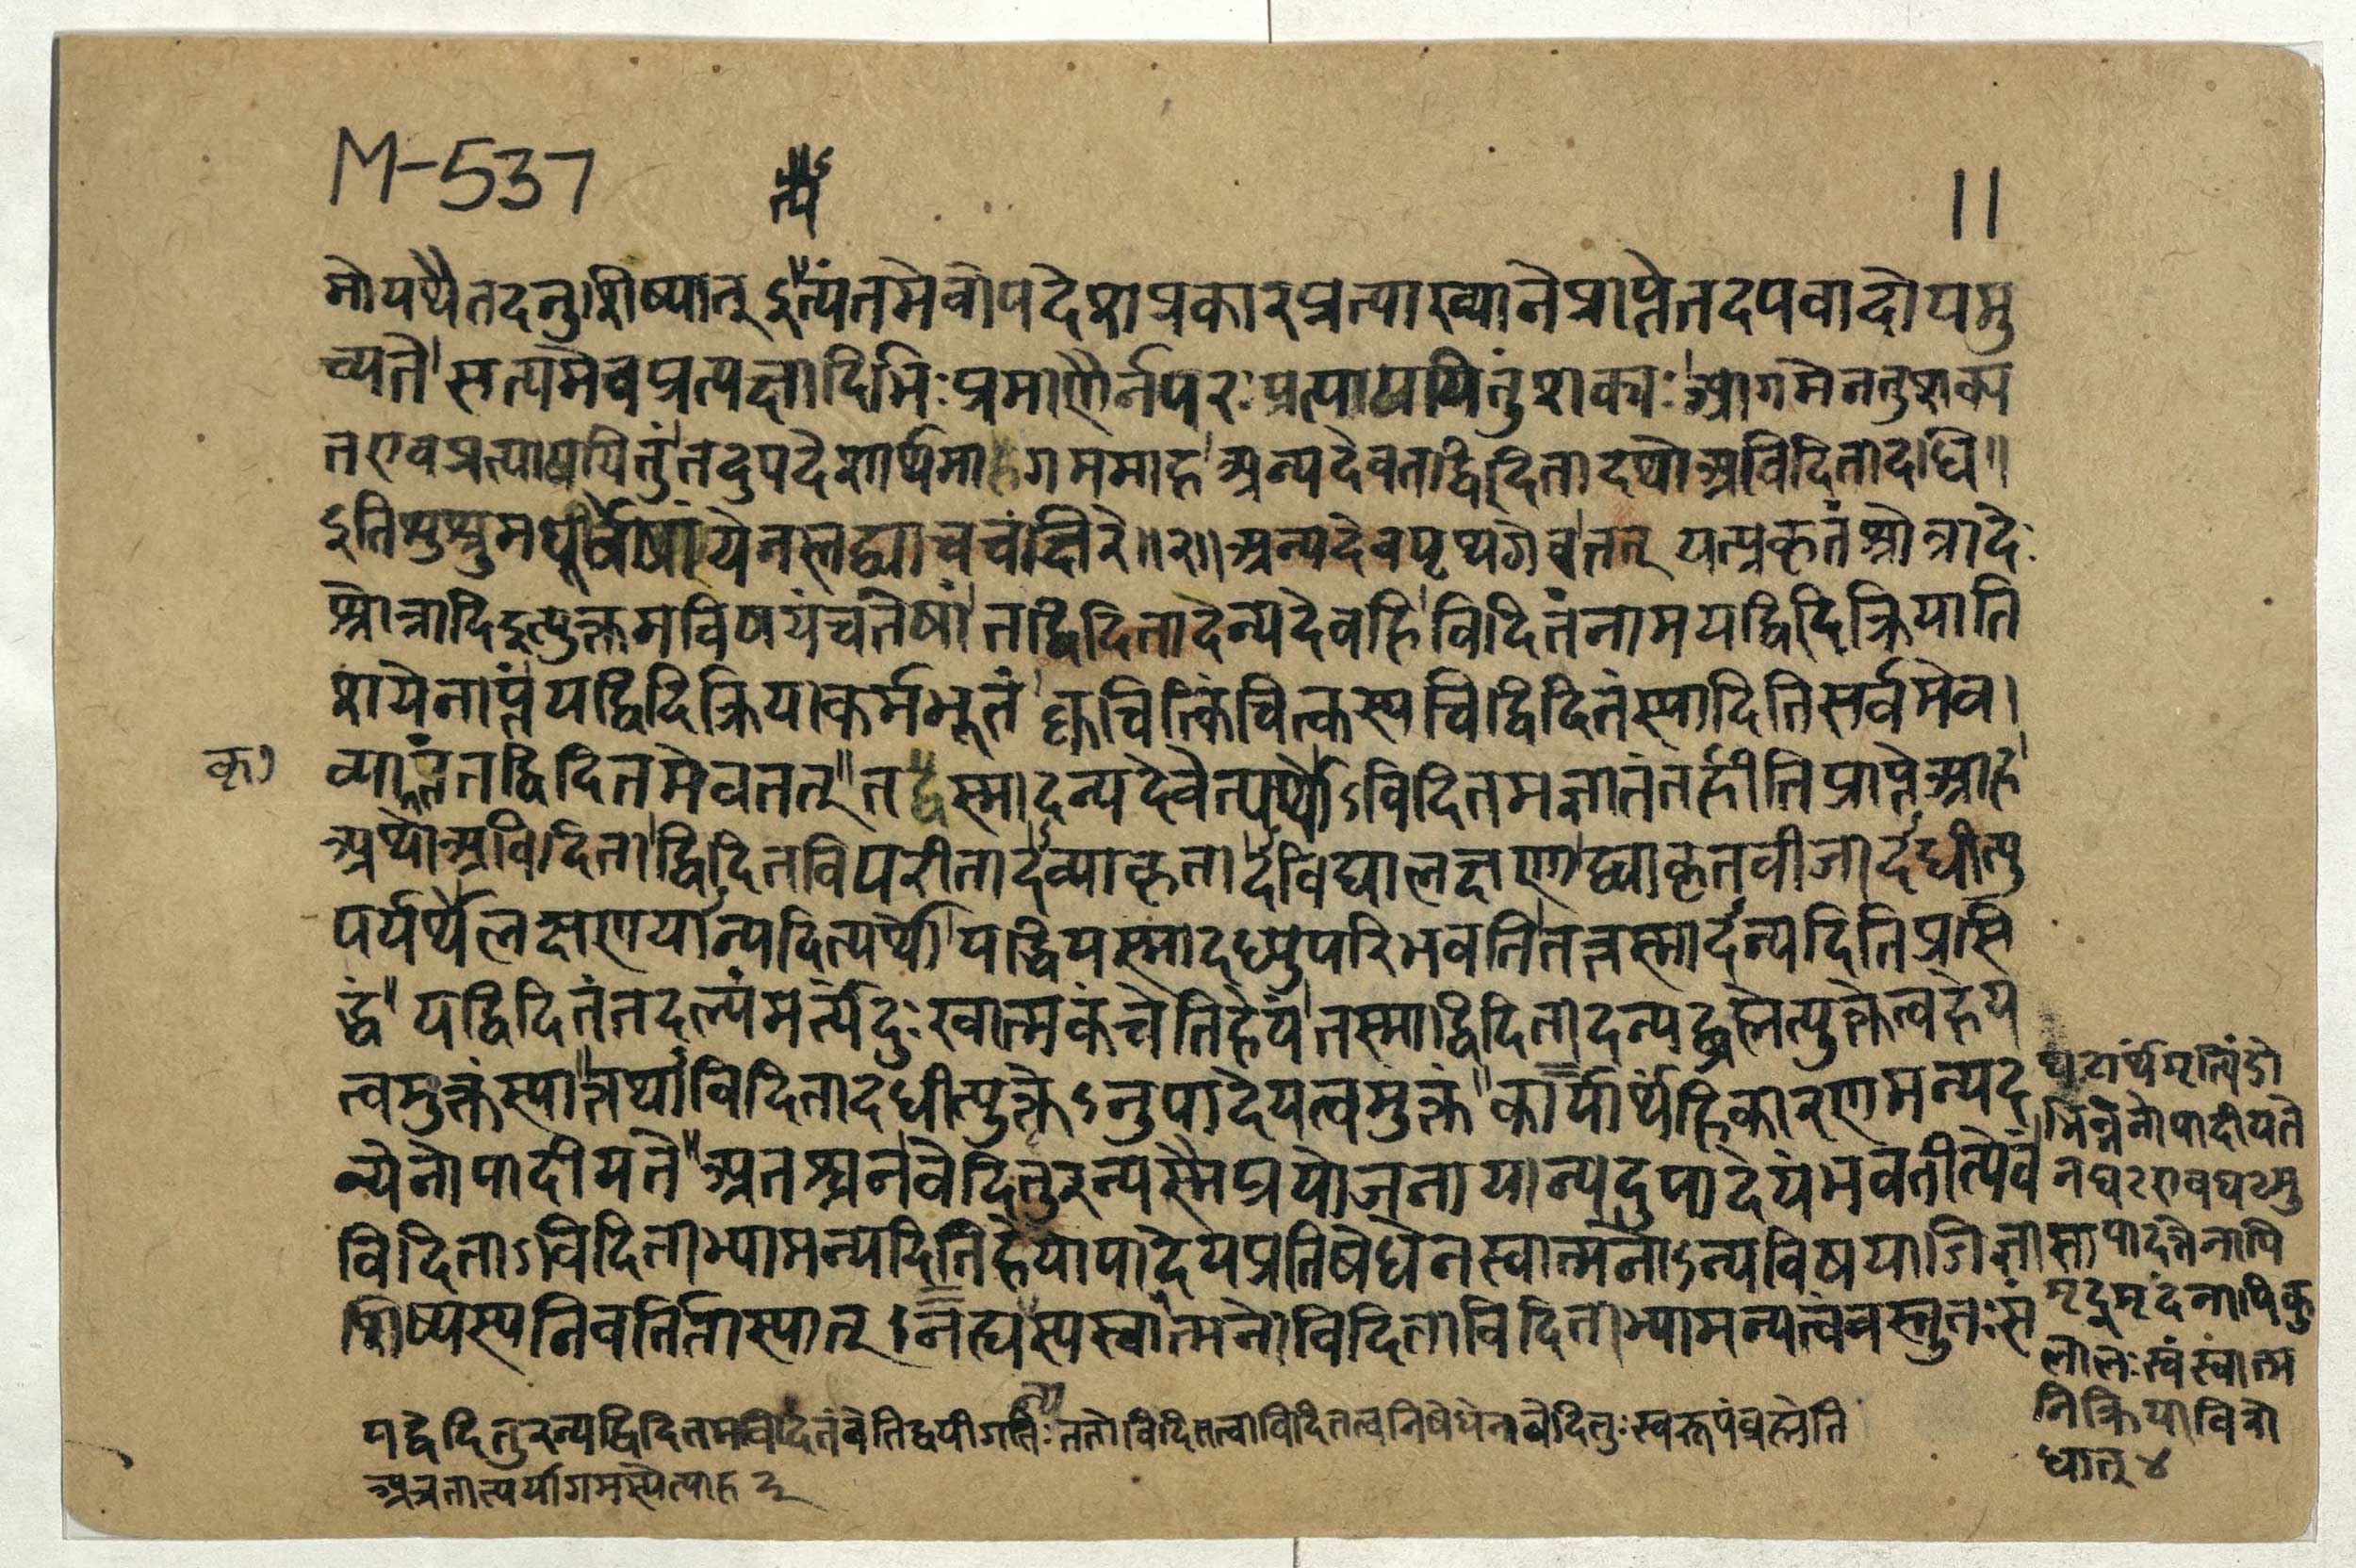 M-537
11
मो यथैतदनुशिष्यात् इत्यंतमेवोपदेशप्रकारप्रत्याख्याने प्राप्ते तदपवादोयमु
च्यते सत्यमेव प्रत्यक्षादिभिः प्रमाणैर्न परः प्रत्याययितुं शक्यः आगमेन तु शक्य
त एव प्रत्याययितुं तदुपदेशार्थमागममाह अन्यदेव तद्विदितादथो अविदितादधि॥
इति शुश्रुम पूर्वेषां ये नस्तद्व्याचचक्षिरे॥३॥ अन्यदेव पृथगेव तत् यत्प्रकृतं श्रोत्रादेः
श्रोत्रादिइत्युक्तमविषयं च तेषां तद्विदितादन्यदेव हि विदितं नाम यद्विदिक्रियाति
शयेनाप्तं यद्विदिक्रियाकर्मभूतं क्वचित्किंचित्कस्यचिद्विदितं स्यादिति सर्वमेव।
कृ१
व्याकृतं तद्विदितमेव तत् तस्मादन्यदेवेत्यर्थो ऽविदितमज्ञातं तर्हीति प्राप्ते आह
अथो अविदिताद्विदितविपरीतादव्याकृतादविद्यालक्षणाद्व्याकृतवीजादधीत्यु
पर्यर्थे लक्षणयान्यदित्यर्थो यद्धि यस्मादध्युपरि भवति तत्तस्मादन्यदिति प्रसि
द्धं यद्विदितं तदल्पं मर्त्यं दुःखात्मकं चेति हेयं तस्माद्विदितादन्यद्ब्रह्मेत्युक्ते त्वहेय
त्वमुक्तं स्यात्तथा विदितादधीत्युक्ते ऽनुपादेयत्वमुक्तं कार्यार्थं हि कारणमन्यद
न्येनोपादीयते अतश्च न वेदितुरन्यस्मै प्रयोजनायान्यदुपादेयं भवतीत्येवं
विदिताऽविदिताभ्यामन्यदिति हेयोपादेयप्रतिषेधेन स्वात्मनोऽन्यविषया जिज्ञासा
शिष्यस्य निवर्तिता स्यात् । न ह्यन्यस्य स्वात्मनो विदिताविदिताभ्यामन्यत्वं वस्तुनः सं
घटार्थं मृत्पिंडो
भिन्न नोपादीयते
न घट एव घटमु
पादत्ते नापि
मृदु मृदं नापि कु
लालः स्वं स्वात्म
नि क्रियाविरो
धात् ४
यद्वेदितुरन्यद्विदितमविदितं वेति द्वयी गतिः ततो विदितत्वाविदितत्वनिषेधेन वेदितुः स्वरूपं ब्रह्मेति
अत्र तात्पर्यागमस्येत्याह २